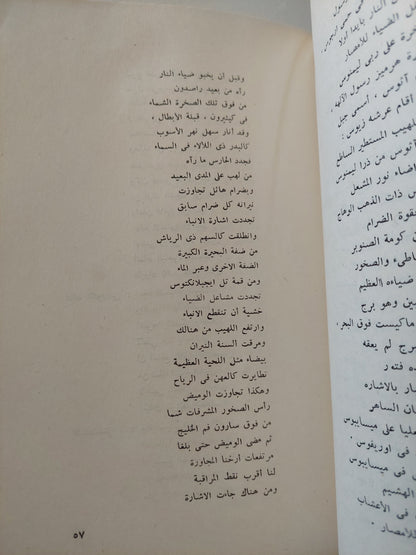 وقبل أن يخبو ضياء النار
رآه من بعيد راصدون
من فوق تلك الصخرة الشماء
فى كيثيرون ، قبلة الأبطال ،
وقد أنار سهل نهر الأسوب
كالبدر ذى اللألاء فى السماء
فجدد الحارس ما رآه
من لهب على المدى البعيد
وبضرام هائل تجاوزت
نيرانه كل ضرام سابق
تجددت اشارة الانباء
وانطلقت كالسهم ذى الرياش
من ضفة البحيرة الكبيرة
الضفة الاخرى وعبر الماء
ومن قمة تل ايجبلانكتوس
تجددت مشاعل الضياء
خشية أن تنقطع الانباء
وارتفع اللهيب من هنالك
ومرقت السنة النيران
بيضاء مثل اللحية العظيمة
تطايرت كالعهن فى الرياح
وهكذا تجاوزت الوميض
رأس الصخور المشرفات شما
من فوق سارون فم الخليج
ثم مضى الوميض حتى بلغا
مرتفعات أرخنا المجاورة
لنا أقرب نقط المراقبة
ومن هناك جاءت الاشارة
٥٧
الضياء للأمصار
النار بايدا أولا
على ربى ليمنوس
هرميز رسول الآلهة
آثوس ، أسمى جبل
أقام عرشه زيوس
اللهيب المستطير الساطع
آثوس من ذرا ليمنوس
ضاء نور المشعل
ذات الذهب الوهاج
الضرام
كومة الصنوبر
والصخور
ضياءه العظيم
وهو برج
ماكيست فوق البحر
لم يعقه
فتور
بالاشاره
الساهر
على ميسابيوس
فى اوريفوس
فى ميسابيوس
الهشيم
فى الأعشاب
للأمصار